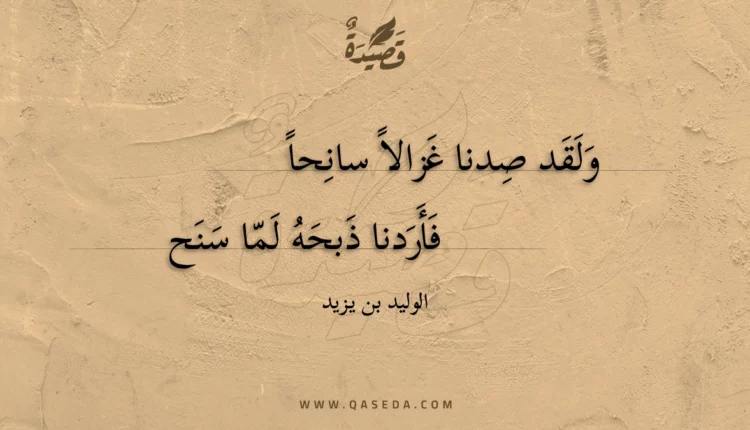 قَصِيدَةٌ
وَلَقَد صِدنا غَزالاً سانِحاً
فَأَرَدنا ذَبحَهُ لَمّا سَنَح
الوليد بن يزيد
WWW.QASEDA.COM